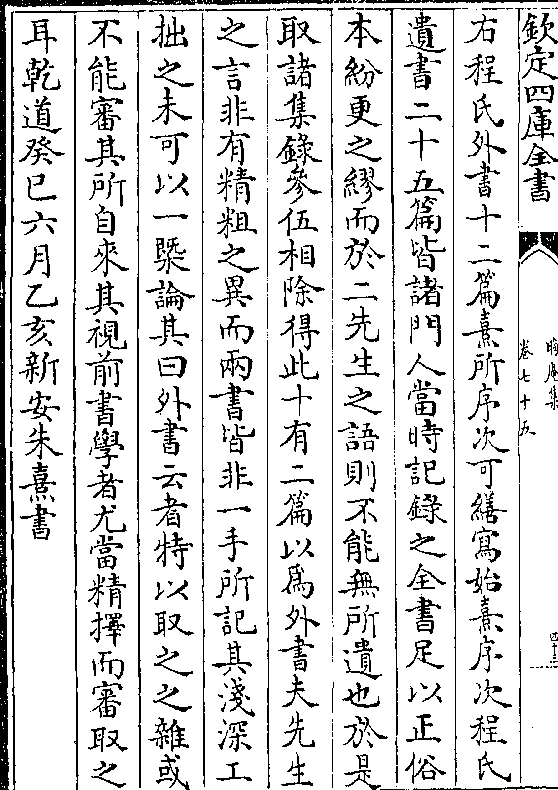 欽定四庫全書
晦庵集
卷七十五
四十三
右程氏外書十二篇熹所序次可繕寫始熹序次程氏
遺書二十五篇皆諸門人當時記錄之全書足以正俗
本紛更之繆而於二先生之語則不能無所遺也於是
取諸集錄參伍相除得此十有二篇以爲外書夫先生
之言非有精粗之異而兩書皆非一手所記其淺深工
拙之未可以一槩論其曰外書云者特以取之之雜或
不能審其所自來其視前書學者尤當精擇而審取之
耳乾道癸巳六月乙亥新安朱熹書